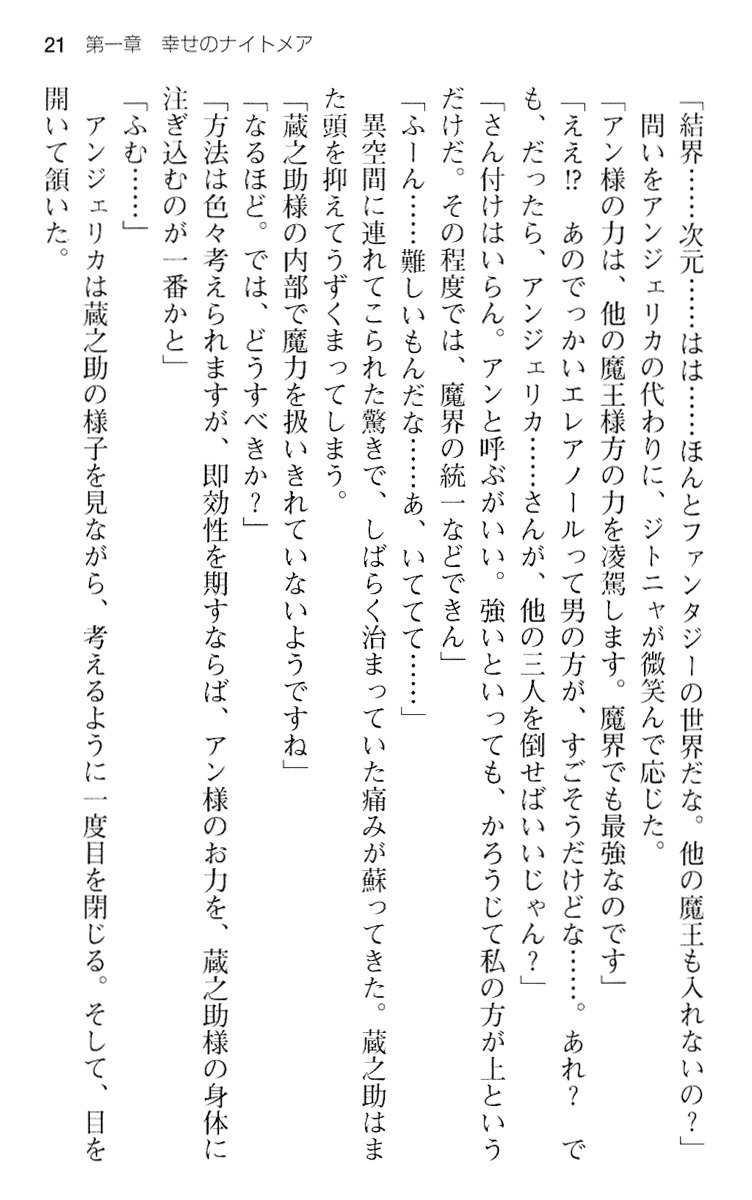 21 第一章　幸せのナイトメア
「結界……次元……はは……ほんとファンタジーの世界だな。他の魔王も入れないの？」
　問いをアンジェリカの代わりに、ジトニャが微笑んで応じた。
「アン様の力は、他の魔王様方の力を凌駕します。魔界でも最強なのです」
「ええ!?　あのでっかいエレアノールって男の方が、すごそうだけどな……。あれ？　で
も、だったら、アンジェリカ……さんが、他の三人を倒せばいいじゃん？」
「さん付けはいらん。アンと呼ぶがいい。強いといっても、かろうじて私の方が上という
だけだ。その程度では、魔界の統一などできん」
「ふーん……難しいもんだな……あ、いててて……」
　異空間に連れてこられた驚きで、しばらく治まっていた痛みが蘇ってきた。蔵之助はま
た頭を抑えてうずくまってしまう。
「蔵之助様の内部で魔力を扱いきれていないようですね」
「なるほど。では、どうすべきか？」
「方法は色々考えられますが、即効性を期すならば、アン様のお力を、蔵之助様の身体に
注ぎ込むのが一番かと」
「ふむ……」
　アンジェリカは蔵之助の様子を見ながら、考えるように一度目を閉じる。そして、目を
開いて頷いた。